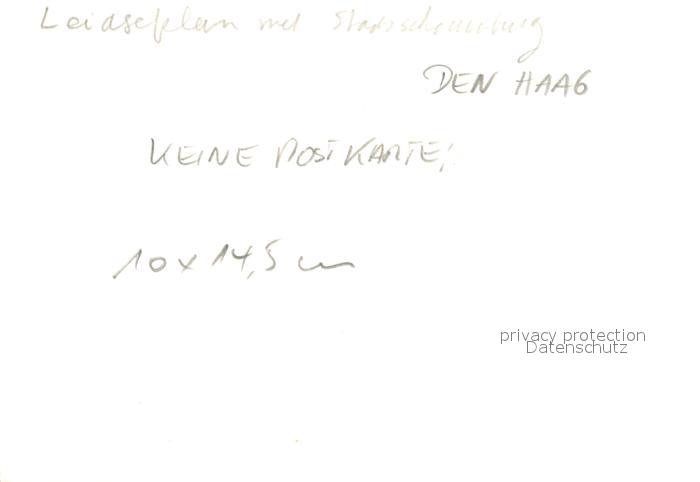 Leidseplein met Stadsschouwburg
DEN HAAG
KEINE POSTKARTE!
10 x 14,5 cm
privacy protection
Datenschutz